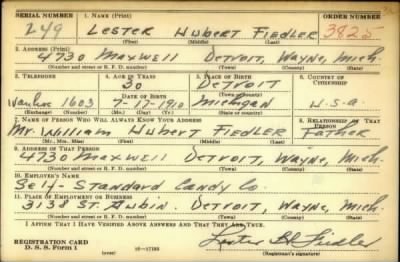 SERIAL NUMBER 1. NAME (Print) ORDER NUMBER
249 LESTER HUBERT FIEDLER 3825
(First) (Middle) (Last)
2. ADDRESS (Print)
4730 MAXWELL DETROIT, WAYNE, Mich.
(Number and street or R. F. D. number) (Town) (County) (State)
3. TELEPHONE 4. AGE IN YEARS 5. PLACE OF BIRTH 6. COUNTRY OF CITIZENSHIP
30 DETROIT
DATE OF BIRTH (Town or county)
1603 7-17-1910 Michigan U.S.A.
(Exchange) (Number) (Mo.) (Day) (Yr.) (State or country)
7. NAME OF PERSON WHO WILL ALWAYS KNOW YOUR ADDRESS 8. RELATIONSHIP OF THAT PERSON
Mr. William HUBERT FIEDLER FATHER
(Mr., Mrs., Miss) (First) (Middle) (Last)
9. ADDRESS OF THAT PERSON
4730 MAXWELL DETROIT, WAYNE, Mich.
(Number and street or R. F. D. number) (Town) (County) (State)
10. EMPLOYER'S NAME
Self - STANDARD CANDY Co.
11. PLACE OF EMPLOYMENT OR BUSINESS
3138 ST. AUBIN. DETROIT, WAYNE, Mich.
(Number and street or R. F. D. number) (Town) (County) (State)
I AFFIRM THAT I HAVE VERIFIED ABOVE ANSWERS AND THAT THEY ARE TRUE.
REGISTRATION CARD
D. S. S. Form 1 16-17105 Lester H. Fiedler
(Registrant's signature)